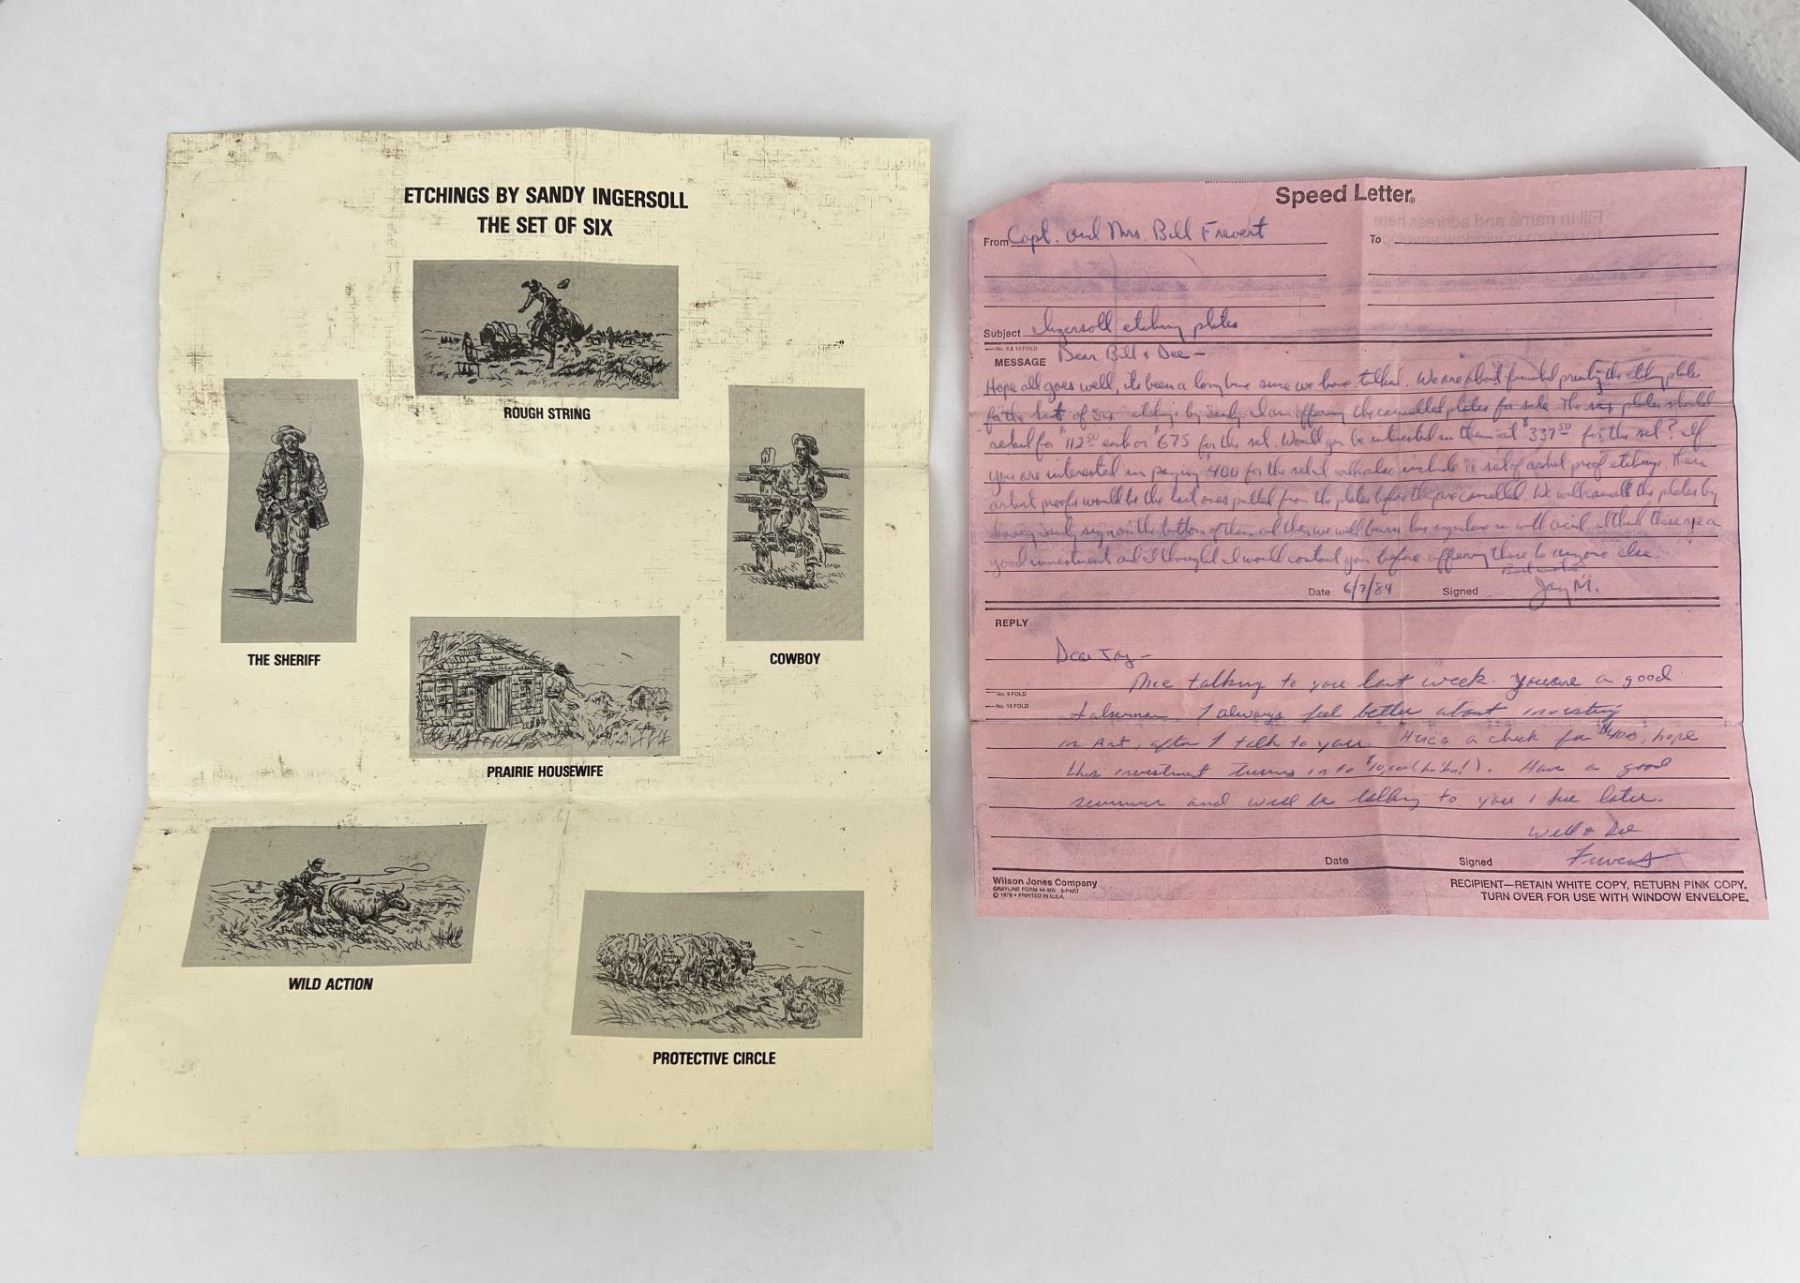 ETCHINGS BY SANDY INGERSOLL
THE SET OF SIX
ROUGH STRING
THE SHERIFF
COWBOY
PRAIRIE HOUSEWIFE
WILD ACTION
PROTECTIVE CIRCLE
Speed Letter®
From Capt. and Mrs. Bill Frevert
To
Subject Ingersoll etching plates
No. 9 & 10 FOLD
MESSAGE Dear Bill & Dee -
Hope all goes well, its been a long time since we have talked. We are about finished printing the etching plates
for the set of six etchings by Sandy. I am offering the cancelled plates for sale. The plates should
retail for $112.50 each or $675 for the set. Would you be interested in them at $337.50 for the set? If
you are interested in paying $400 for the set I will also include a set of artist proof etchings. These
artist proofs would be the last ones pulled from the plates before they are cancelled. We will cancel the plates by
having Sandy sign on the bottom of them and then we will burn his signature in with acid. I think these are a
good investment and I thought I would contact you before offering these to anyone else.
Best wishes
Date 6/7/84 Signed Jay M.
REPLY
Dear Jay -
Nice talking to you last week. You are a good
salesman. I always feel better about investing
in Art, after I talk to you. Here's a check for $400, hope
this investment turns into $10,000 (ho ho!). Have a good
summer and will be talking to you & Sue later.
Will & Dee
Frevert
No. 9 FOLD
No. 10 FOLD
Date Signed
Wilson Jones Company
GRAYLINE FORM 44-900 3-PART
© 1976 • PRINTED IN U.S.A.
RECIPIENT—RETAIN WHITE COPY, RETURN PINK COPY.
TURN OVER FOR USE WITH WINDOW ENVELOPE.